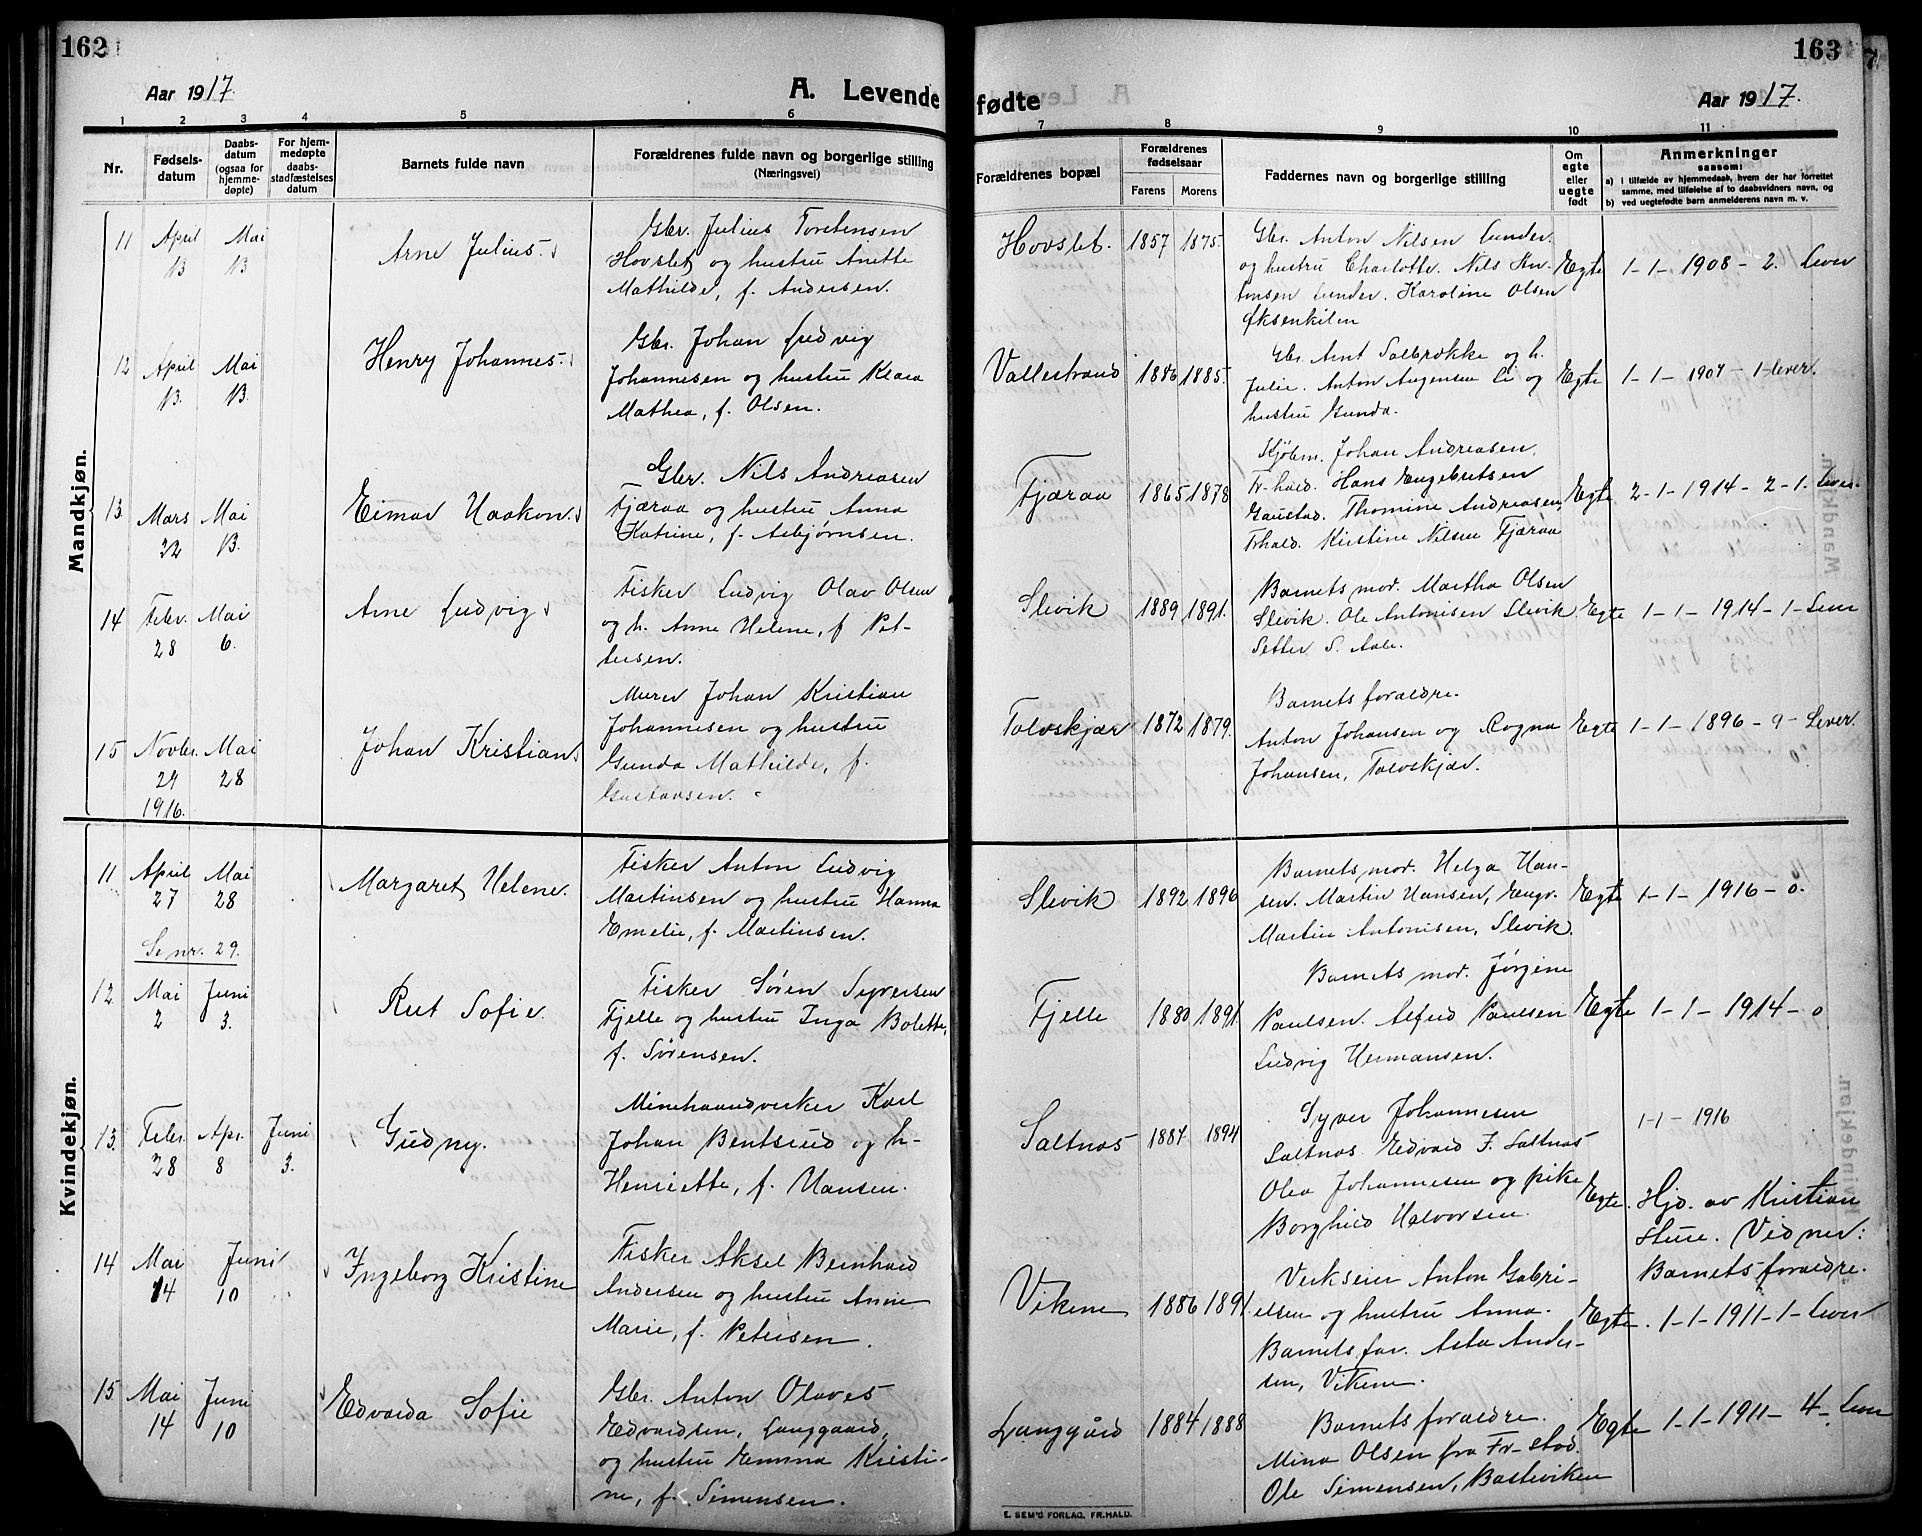 162
Aar 1917.
A. Levende
1 2 3 4 5 6
Nr.
Fødsels-
datum
Daabs-
datum
(ogsaa for
hjemme-
døpte)
For hjem-
medøpte
daabs-
stadfæstelses
datum
Barnets fulde navn
Forældrenes fulde navn og borgerlige stilling
(Næringsvei)
Mandkjøn.
11 April 13 Mai 13
Arne Julius.
Gbr. Julius Torstensen
Hovslet og hustru Anette
Mathilde, f. Andersen.
12 April 13. Mai 13.
Henry Johannes.
Gbr. Johan Ludvig
Johannesen og hustru Klara
Mathea, f. Olsen.
13 Mars 22 Mai 13.
Eimar Haakon.
Gbr. Nils Andreasen
Fjæraa og hustru Anna
Katrine, f. Asbjørnsen.
14 Febr. 28 Mai 6.
Arne Ludvig
Fisker Ludvig Olav Olsen
og h. Anne Helene, f. Pet-
tersen.
15 Novbr. 29 1916. Mai 28
Johan Kristian
Murer Johan Kristian
Johannesen og hustru
Gunda Mathilde, f.
Gustavsen.
Kvindekjøn.
11 April 27 Mai 28
Margaret Helene.
Fisker Anton Ludvig
Martinsen og hustru Hanna
Emelie, f. Martinsen.
Se nr. 29.
12 Mai 2 Juni 3.
Rut Sofie.
Fisker Søren Syversen
Fjelle og hustru Inga Bolette,
f. Sørensen.
13. Febr. 28 Apr. 8 Juni 3.
Gudny.
Minehaandverker Karl
Johan Bentsrud og h-
Henriette, f. Hansen.
14 Mai 14 Juni 10
Ingeborg Kristine
Fisker Aksel Bernhard
Andersen og hustru Anne
Marie, f. Petersen.
15 Mai 14 Juni 10
Edvarda Sofie
Gbr. Anton Olaves
Edvardsen, Langgaard,
og hustru Emma Kristi-
ne, f. Simensen.
163
fødte
Aar 1917.
7 8 9 10 11
Forældrenes bopæl
Forældrenes
fødselsaar
Farens Morens
Faddernes navn og borgerlige stilling
Om
egte
eller
uegte
født
Anmerkninger
saasom:
a) i tilfælde av hjemmedaab, hvem der har forrettet
samme, med tilføielse av to daabsvidners navn, og
b) ved uegtefødte barn anmelderens navn m. v.
Hovslet. 1857 1875.
Gbr. Anton Nilsen Lunder.
og hustru Charlotte. Nils An-
tonsen Lunder. Karoline Olsen
Øksenkilen
Egte 1-1- 1908- 2. Lever
Vallestrand 1886 1885.
Gbr. Arnt Solbrække og h.
Julie. Anton Augensen Li og
hustru Gunda.
Egte 1-1- 1907-1-lever.
Fjæraa 1865 1878
Kjøbm. Johan Andreasen,
Fr-hald. Hans Engebretsen
Gaustad. Thomine Andreasen,
Frhald. Kirstine Nilsen Fjæraa
Egte 2-1-1914-2-1. Lever.
Slevik 1889 1891.
Barnets mor. Martha Olsen
Slevik. Ole Antonisen Slevik.
Petter S. Aale.
Egte 1-1-1914-1-Lever
Tolvskjær 1872 1879.
Barnets foraldre.
Anton Johansen og Ragna
Johansen, Tolvskjær.
Egte 1-1-1896-9-Lever.
Slevik 1892 1896
Barnets mor. Helga Han-
sen. Martin Hansen, Engv.
Martin Antonisen, Slevik.
Egte 1-1-1916-0.
Fjelle 1880 1891.
Barnets mor. Jørgine
Paulsen. Alfred Paulsen
Ludvig Hermansen.
Egte 1-1-1914-0
Saltnas 1887. 1894
Syver Johannesen
Saltnas. Edvard F. Saltnas
Olea Johannesen og pike
Borghild Halvorsen.
Egte.
1-1-1916
Hjd. av Kristian
Hure. Vidner:
Barnets foraldre.
Vikene 1886 1891.
Verkseier Anton Gabri-
elsen og hustru Anna.
Barnets far. Asta Ander-
sen, Vikene.
Egte. 1-1-1911-1-Lever
Langgård 1884 1888
Barnets foraldre.
Mina Olsen fra Fr-stad.
Ole Simensen, Basteviken
Egte 1-1-1911- 4- Lever
E. SEM'S FORLAG, FR.HALD.